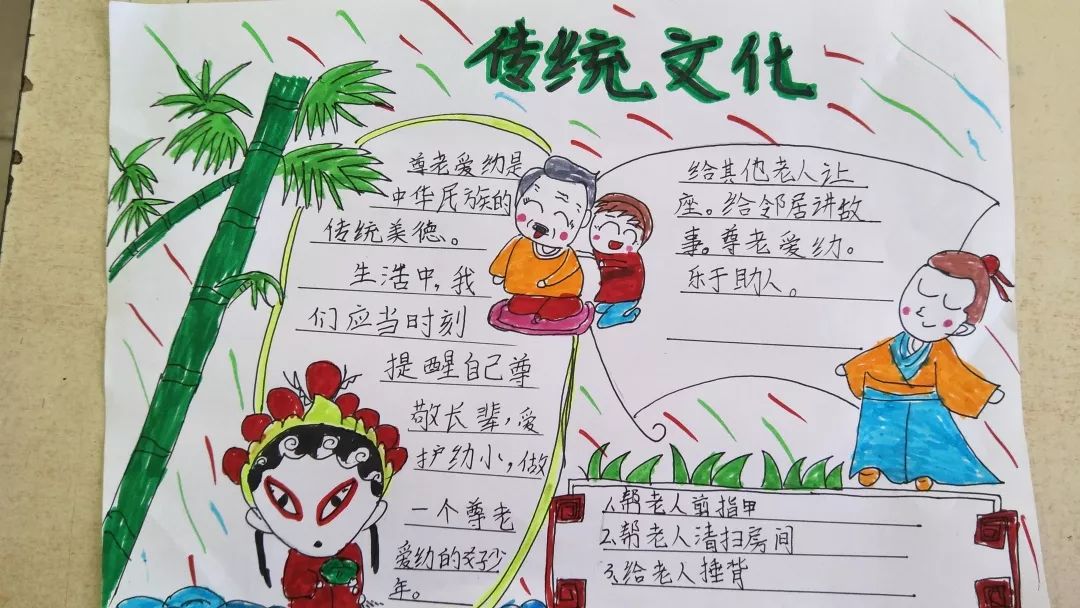 传统文化
尊老爱幼是
中华民族的
传统美德。
生活中,我
们应当时刻
提醒自己尊
敬长辈,爱
护幼小,做
一个尊老
爱幼的好少
年。
给其他老人让
座。给邻居讲故
事。尊老爱幼。
乐于助人。
1.帮老人剪指甲
2.帮老人清扫房间
3.给老人捶背